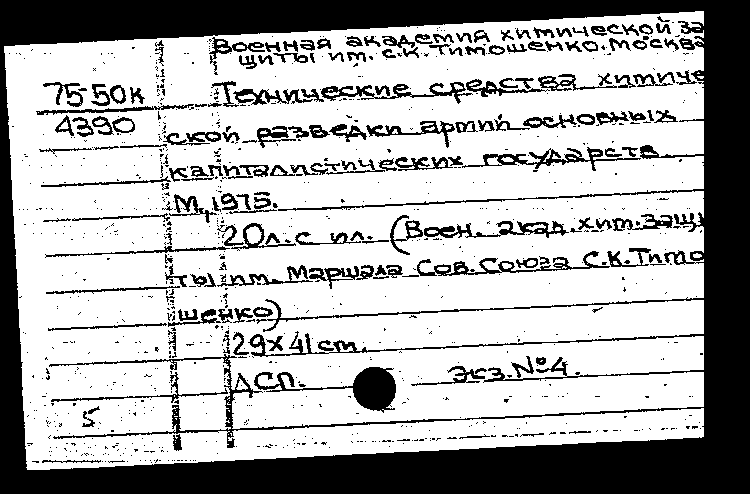 Военная академия химической за
щиты им. С.К. Тимошенко. Москва
75-50к Технические средства химиче
4390 ской разведки армий основных
капиталистических государств.
М., 1975.
20 л. с ил. (Воен. акад. хим. защи
ты им. Маршала Сов. Союза С.К. Тимо
шенко)
29х41 cm.
ДСП. Экз. №4.
5